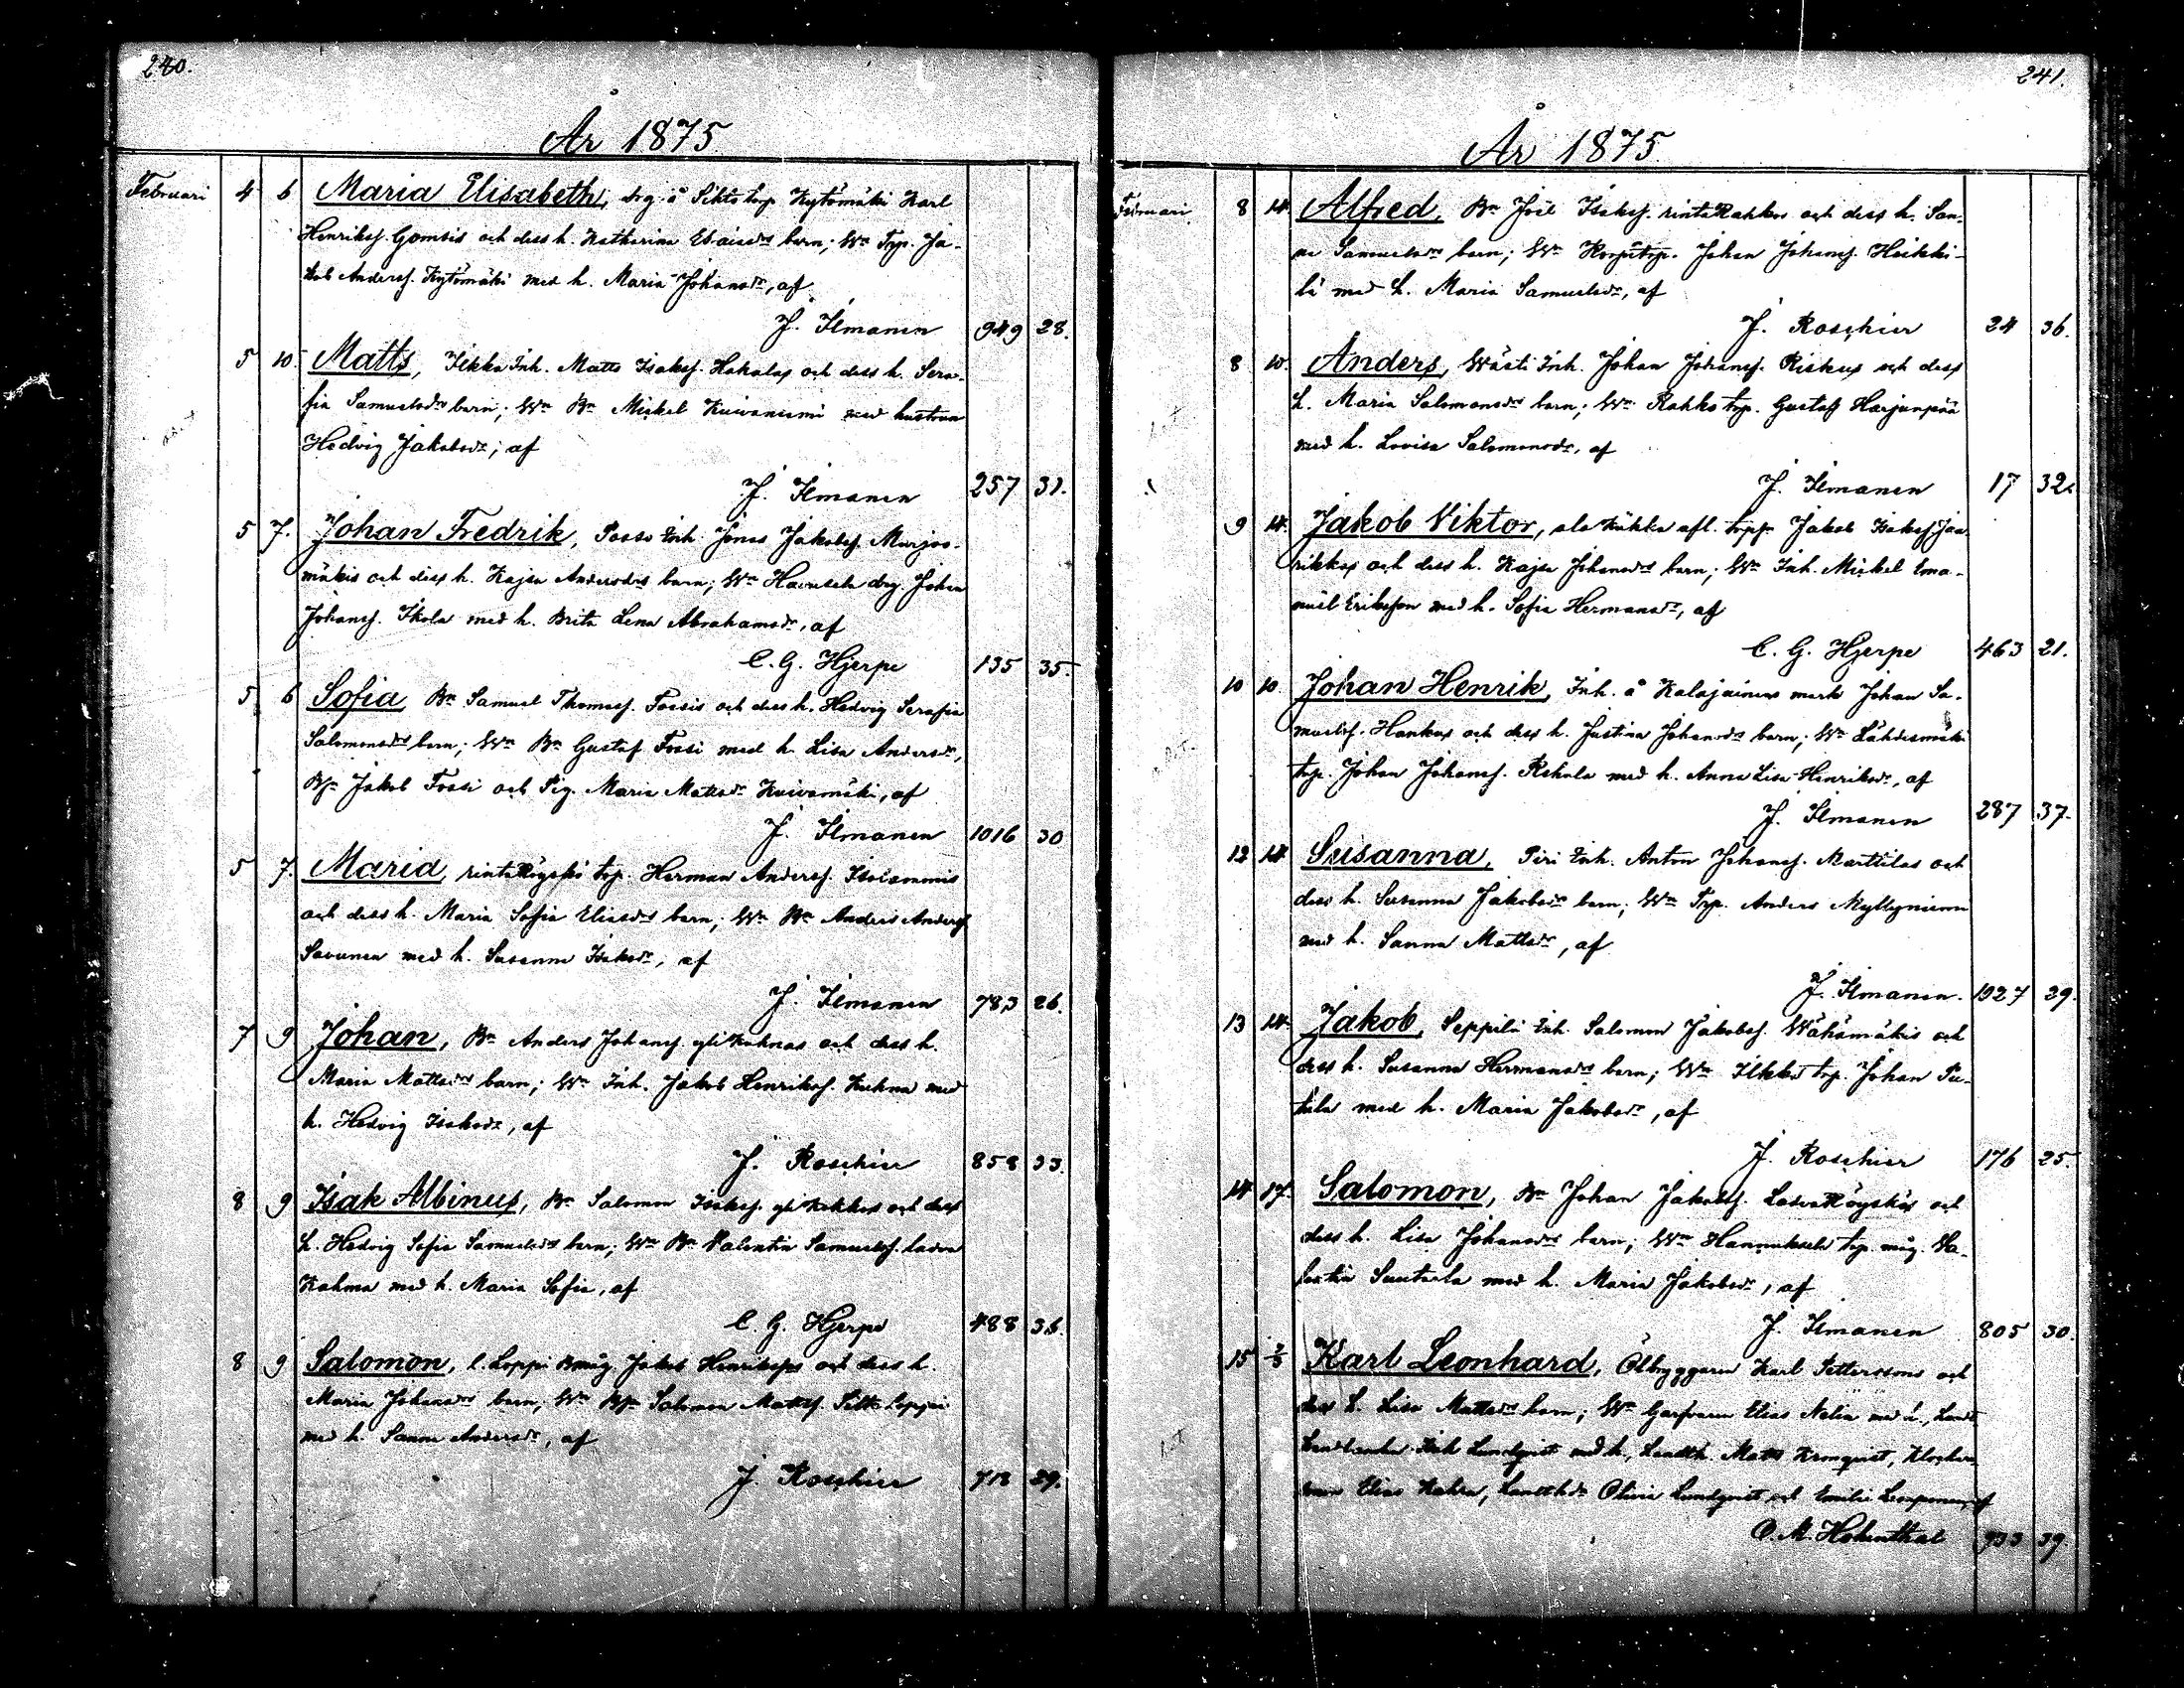 240.
År 1875
Februari 4 6 Maria Elisabeth, drg. å torp Kytömäki Karl
Henrikss. Gombsis och dess h. Katharina barn; Wn Trp. Ja-
kob Anderss. Kytömäki med h. Maria Johansdr, af
J. Ilmanen 949 28.
5 10. Matts, Ilkka Inh. Matts Isakss. Hakalas och dess h. Sera-
fia Samuelsdrs barn; Wn Bn Mickel Kuivaniemi med hustrun
Hedvig Jakobsdr; af
J. Ilmanen 257 31.
5 7. Johan Fredrik, Passi Inh. Jonas Jakobss. Marjo-
mäkis och dess h. Kajsa Andersdrs barn; Wn drg. Johan
Johanss. Ikola med h. Brita Lena Abrahamsdr, af
C. G. Hjerpe 135 35.
5 6 Sofia Bn Samuel Thomass. Fossis och dess h. Hedvig Serafia
Salomonsdrs barn; Wn Bn Gustaf Fossi med h. Lisa Andersdr,
Jakob Fossi och Pig. Maria Mattsdr Kuivamäki, af
J. Ilmanen 1016 30
5 7. Maria, rinta trp. Herman Anderss. Isolammis
och dess h. Maria Sofia Eliasdrs barn; Wn Bn Anders Anderss.
Savunen med h. Susanna Isaksdr, af
J. Ilmanen 783 26.
7 9 Johan, Bn Anders Johanss. yli Kuhnas och dess h.
Maria Mattsdrs barn; Wn Inh. Jakob Henrikss. Kuhna med
h. Hedvig Isaksdr, af
J. Roschier 858 33.
8 9 Isak Albinus, Bn Salomon Isakss. yli Kokkos och dess
h. Hedvig Sofia Samuelsdrs barn; Wn Bn Valentin Samuelss. ladva
Kahma med h. Maria Sofia, af
C. G. Hjerpe 488 36.
8 9 Salomon, l. Loppi Bmåg. Jakob Henrikss. och dess h.
Maria Johansdrs barn; Wn Salomon Mattss.
med h. Sanna Andersdr, af
J. Roschier 718 29.
241.
År 1875
Februari 8 14. Alfred, Bn Joel Isakss. rinta Rahkos och dess h. San-
na Samuelsdrs barn; Wn trp. Johan Johanss. Heikki-
lä med h. Maria Samuelsdr, af
J. Roschier 24 36.
8 10. Anders, Inh. Johan Johanss. Riskus och dess
h. Maria Salomonsdrs barn; Wn Rahko trp. Gustaf Harjunpää
med h. Lovisa Salomonsdr, af
J. Ilmanen 17 32.
9 14. Jakob Viktor, ala afl. Jakob Isakss. Jaa-
rikkas och dess h. Kajsa Johansdrs barn; Wn Inh. Mickel Ema-
nuel Eriksson med h. Sofia Hermansdr, af
C. G. Hjerpe 463 21.
10 10. Johan Henrik, Inh. å Kalajaines mark Johan Sa-
muelss. Hankas och dess h. Justina Johansdrs barn; Wn Lähdesmäki
trp. Johan Johanss. Rekola med h. Anna Lisa Henriksdr, af
J. Ilmanen 287 37.
12 14 Susanna, Piri Inh. Anton Johanss. Marttilas och
dess h. Susanna Jakobsdrs barn; Wn Trp. Anders Myllyniemi
med h. Sanna Mattsdr, af
J. Ilmanen. 1027 29.
13 14. Jakob, Seppilä Inh. Salomon Jakobss. Wähämäkis och
dess h. Susanna Hermansdrs barn; Wn Ilkka trp. Johan
med h. Maria Jakobsdr, af
J. Roschier 176 25.
14 17. Salomon, Bn Johan Jakobss. och
dess h. Lisa Johansdrs barn; Wn Hannuksela trp. måg. Va-
lentin med h. Maria Jakobsdr, af
J. Ilmanen 805 30.
15 2/3 Karl Leonhard, Ölbryggaren Karl Petterssons och
dess h. Lisa Mattsdrs barn; Wn Garfvaren Elias Nelin med h.,
Lundqvist med h, Landth. Matts Kronqvist,
Elias , Olivia Lundqvist och Emilie , af
O. M. Hohenthal 933 39